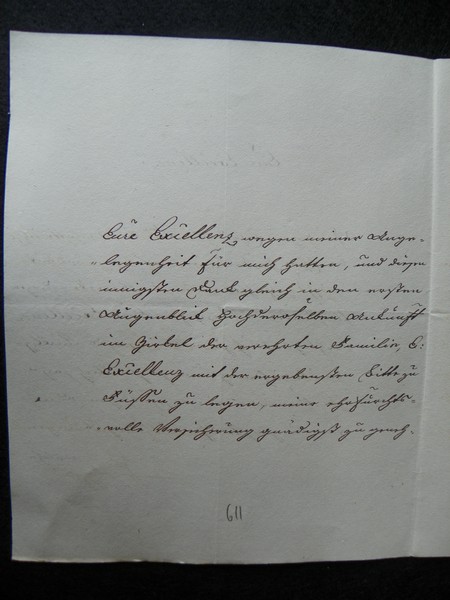 Eure Excellenz, wegen meiner Ange-
legenheit für mich hatten, und diesen
innigsten Dank gleich in den ersten
Augenblik Hochderoselben Ankunft
im Zirkel der verehrten Familie, E:
Excellenz mit der ergebensten Bitte zu
Füssen zu legen, meine ehrfurchts-
volle Versicherung gnädigst zu geneh-
611